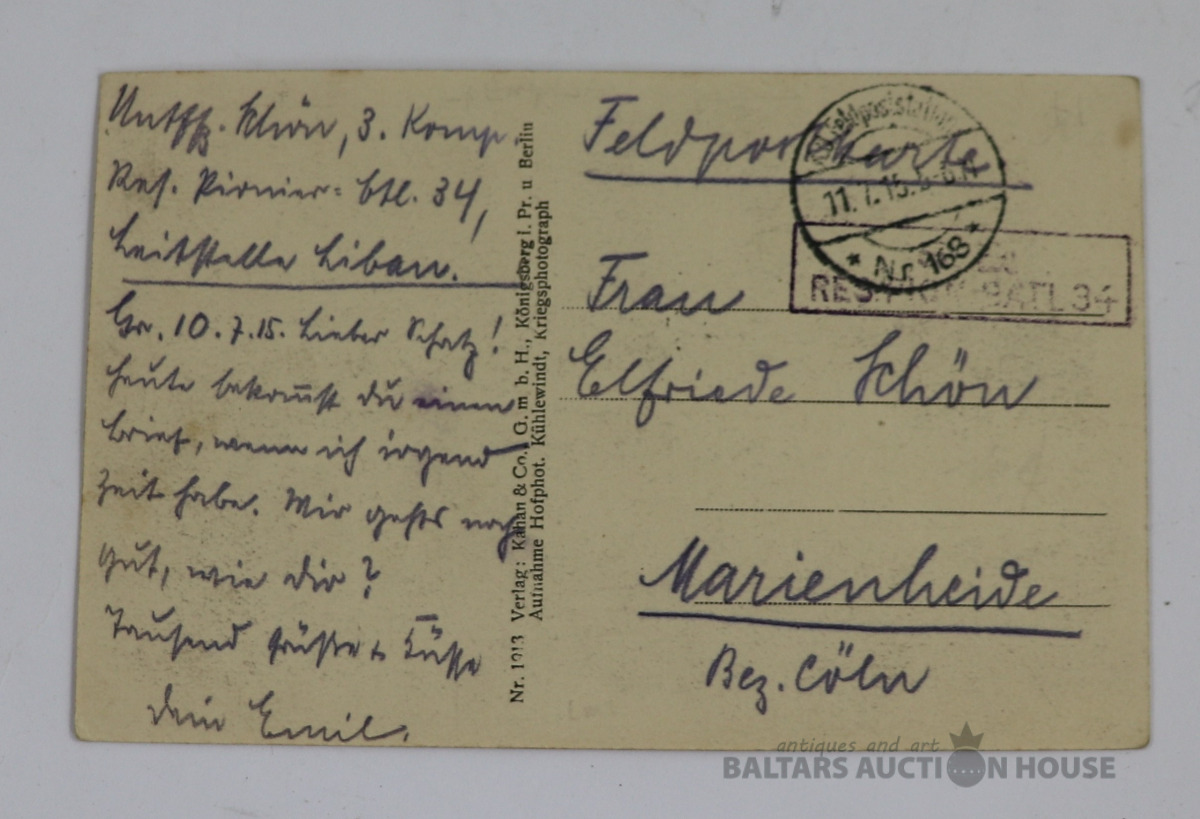 Untffz. Schön, 3. Komp.
Res. Pionier-Btl. 34,
Leitstelle Libau.
Gr. 10.7.15. Lieber Schatz!
Heute bekom̅st du einen
Brief, wenn ich irgend
Zeit habe. Mir gehts noch
gut, wie dir?
Tausend Grüße + Küsse
dein Emil.
Nr. 1913 Verlag: Kahan & Co., G. m b. H., Königsberg i. Pr. u Berlin
Aufnahme Hofphot. Kühlewindt, Kriegsphotograph
Feldpostkarte
Feldpoststation
11.7.15.
* Nr. 168 *
RES. PION. BATL 34
Frau
Elfriede Schön
Marienheide
Bez. Cöln
antiques and art
BALTARS AUCTION HOUSE